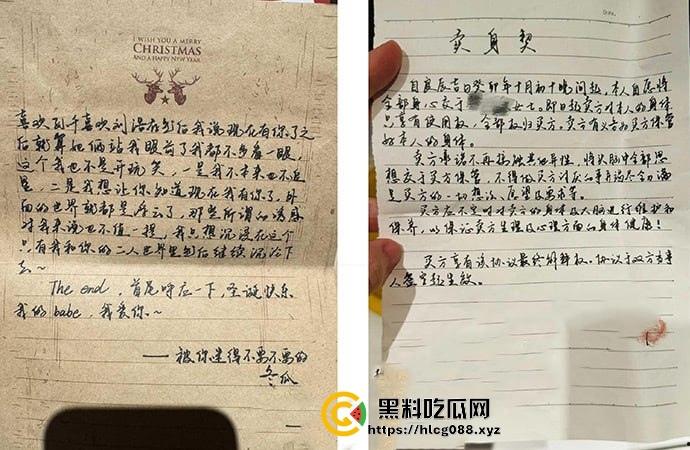 I WISH YOU A MERRY
CHRISTMAS
AND A HAPPY NEW YEAR
喜欢瓦千喜欢刘浩存到后我说现在有你了之
后就算她俩站我眼前了我都不多看一眼,
这个我也不是开玩笑,一是我不本来也不近
是,二是我想让你知道现在我有你了,外
面的世界就都是浮云了,那些所谓的诱惑
对我来说也不值一提,我只想沉浸在这个
只有我和你的二人世界里然后继续沉沦下
去~
The end,首尾呼应一下,圣诞快乐
我的babe,我爱你.~
——被你迷得不要不要的
冬瓜
卖身契
自良辰吉日癸卯年十月初十晚间起,本人自愿将
全部身心交于 女士。即日起卖方对本人的身体
只享有使用权,全部权归买方。卖方有义务为买方保管
好本人的身体。
卖方承诺不再接触其他异性,将大脑中全部思
想交于买方保管,不得做买方讨厌的事并竭尽全力满
足买方的一切想法、愿望及要求等。
买方应不定时对卖方的身体及大脑进行维护和
保养,以保证卖方生理及心理方面的身体健康!
买方享有该协议最终解释权。协议于双方当事
人签字起生效。
黑料吃瓜网
https://hlcg088.xyz